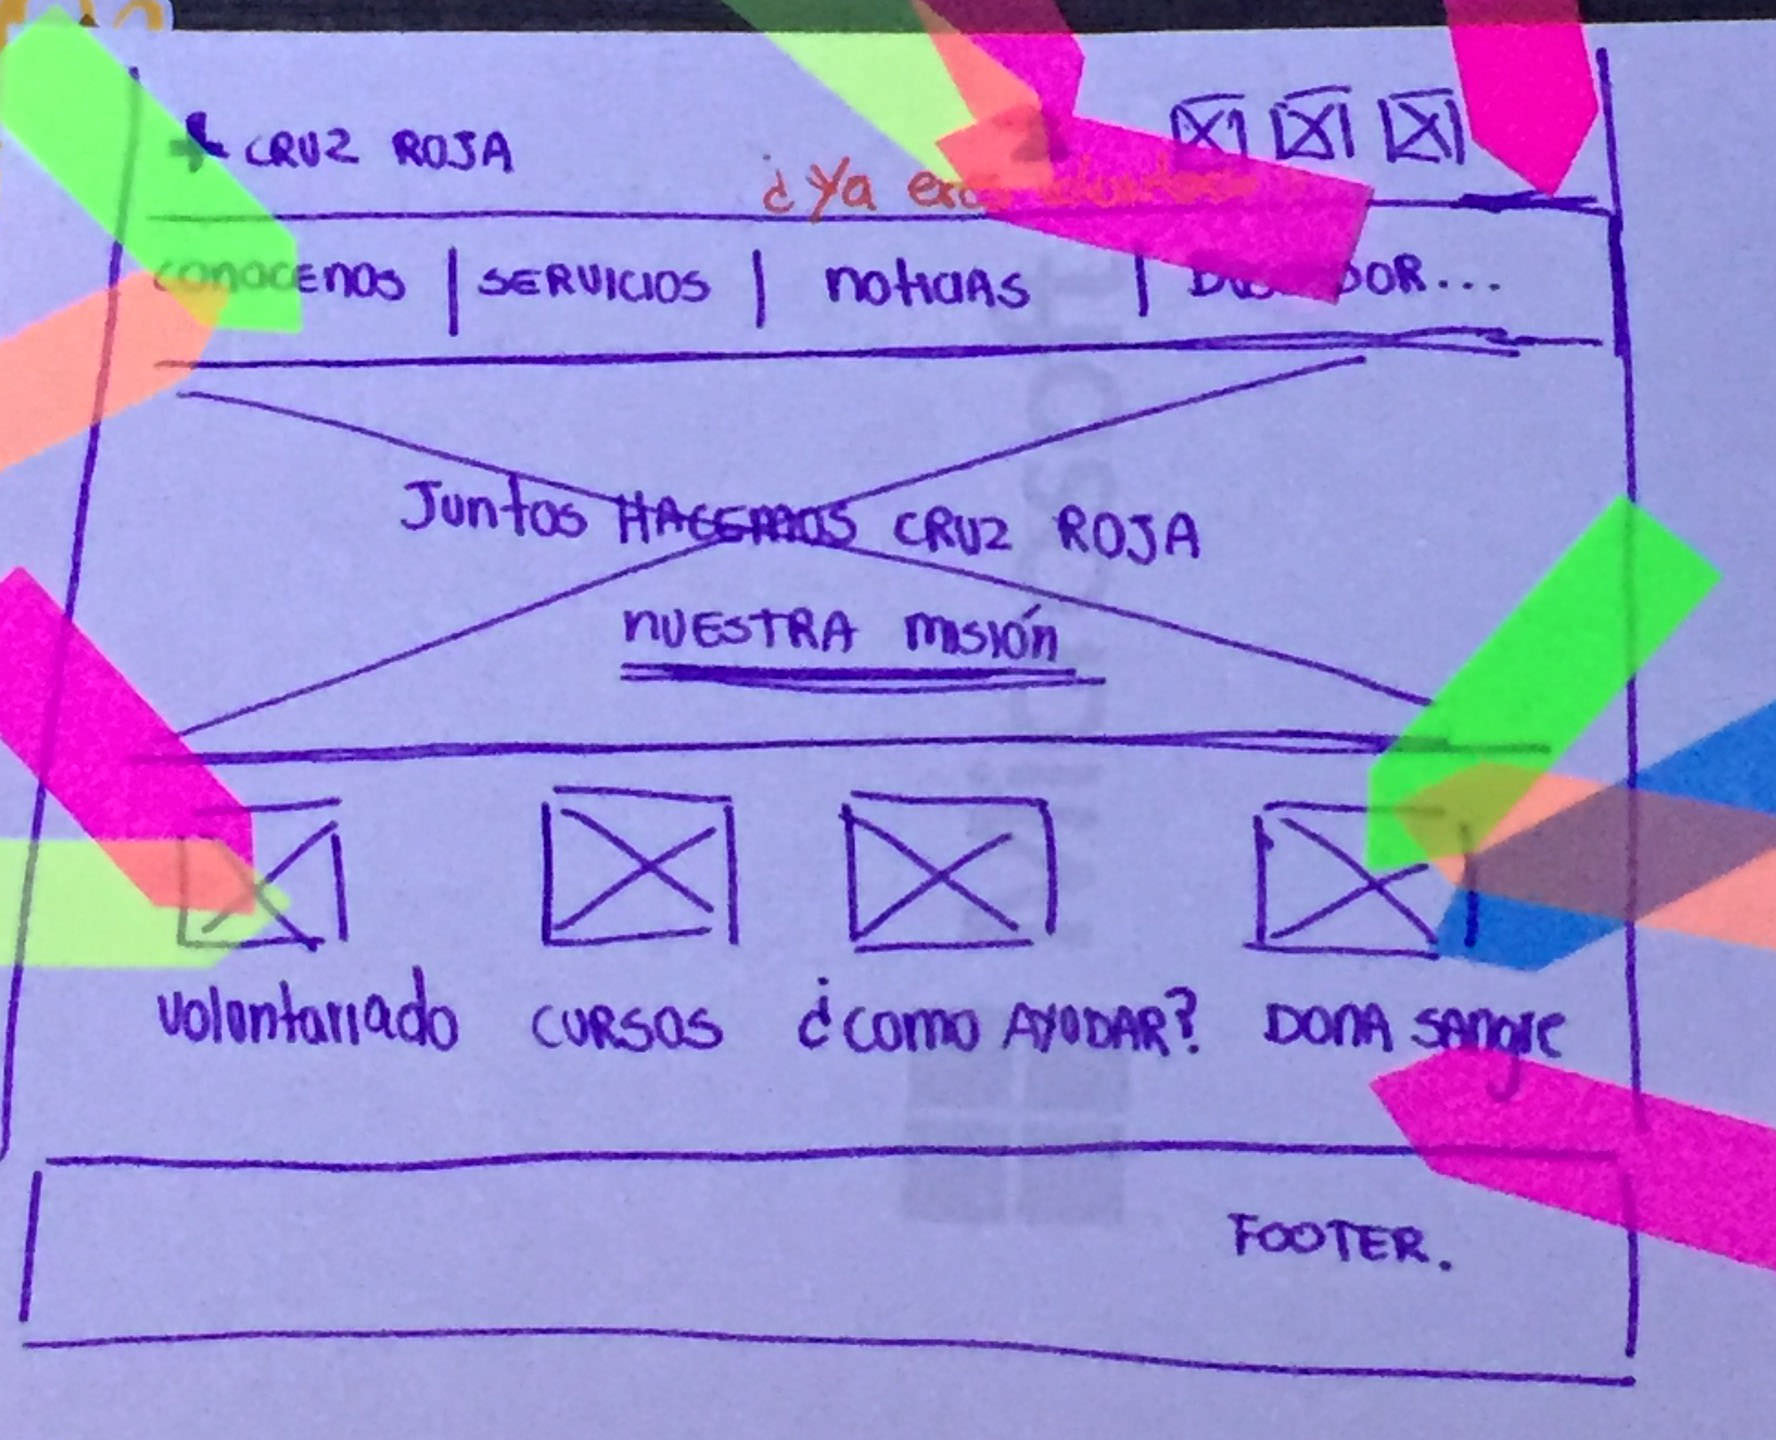 CRUZ ROJA
¿Ya
CONOCENOS | SERVICIOS | noticias |
Juntos HACEMOS CRUZ ROJA
NUESTRA misión
Voluntariado CURSOS ¿como AYUDAR? DONA sangre
FOOTER.
Microsoft